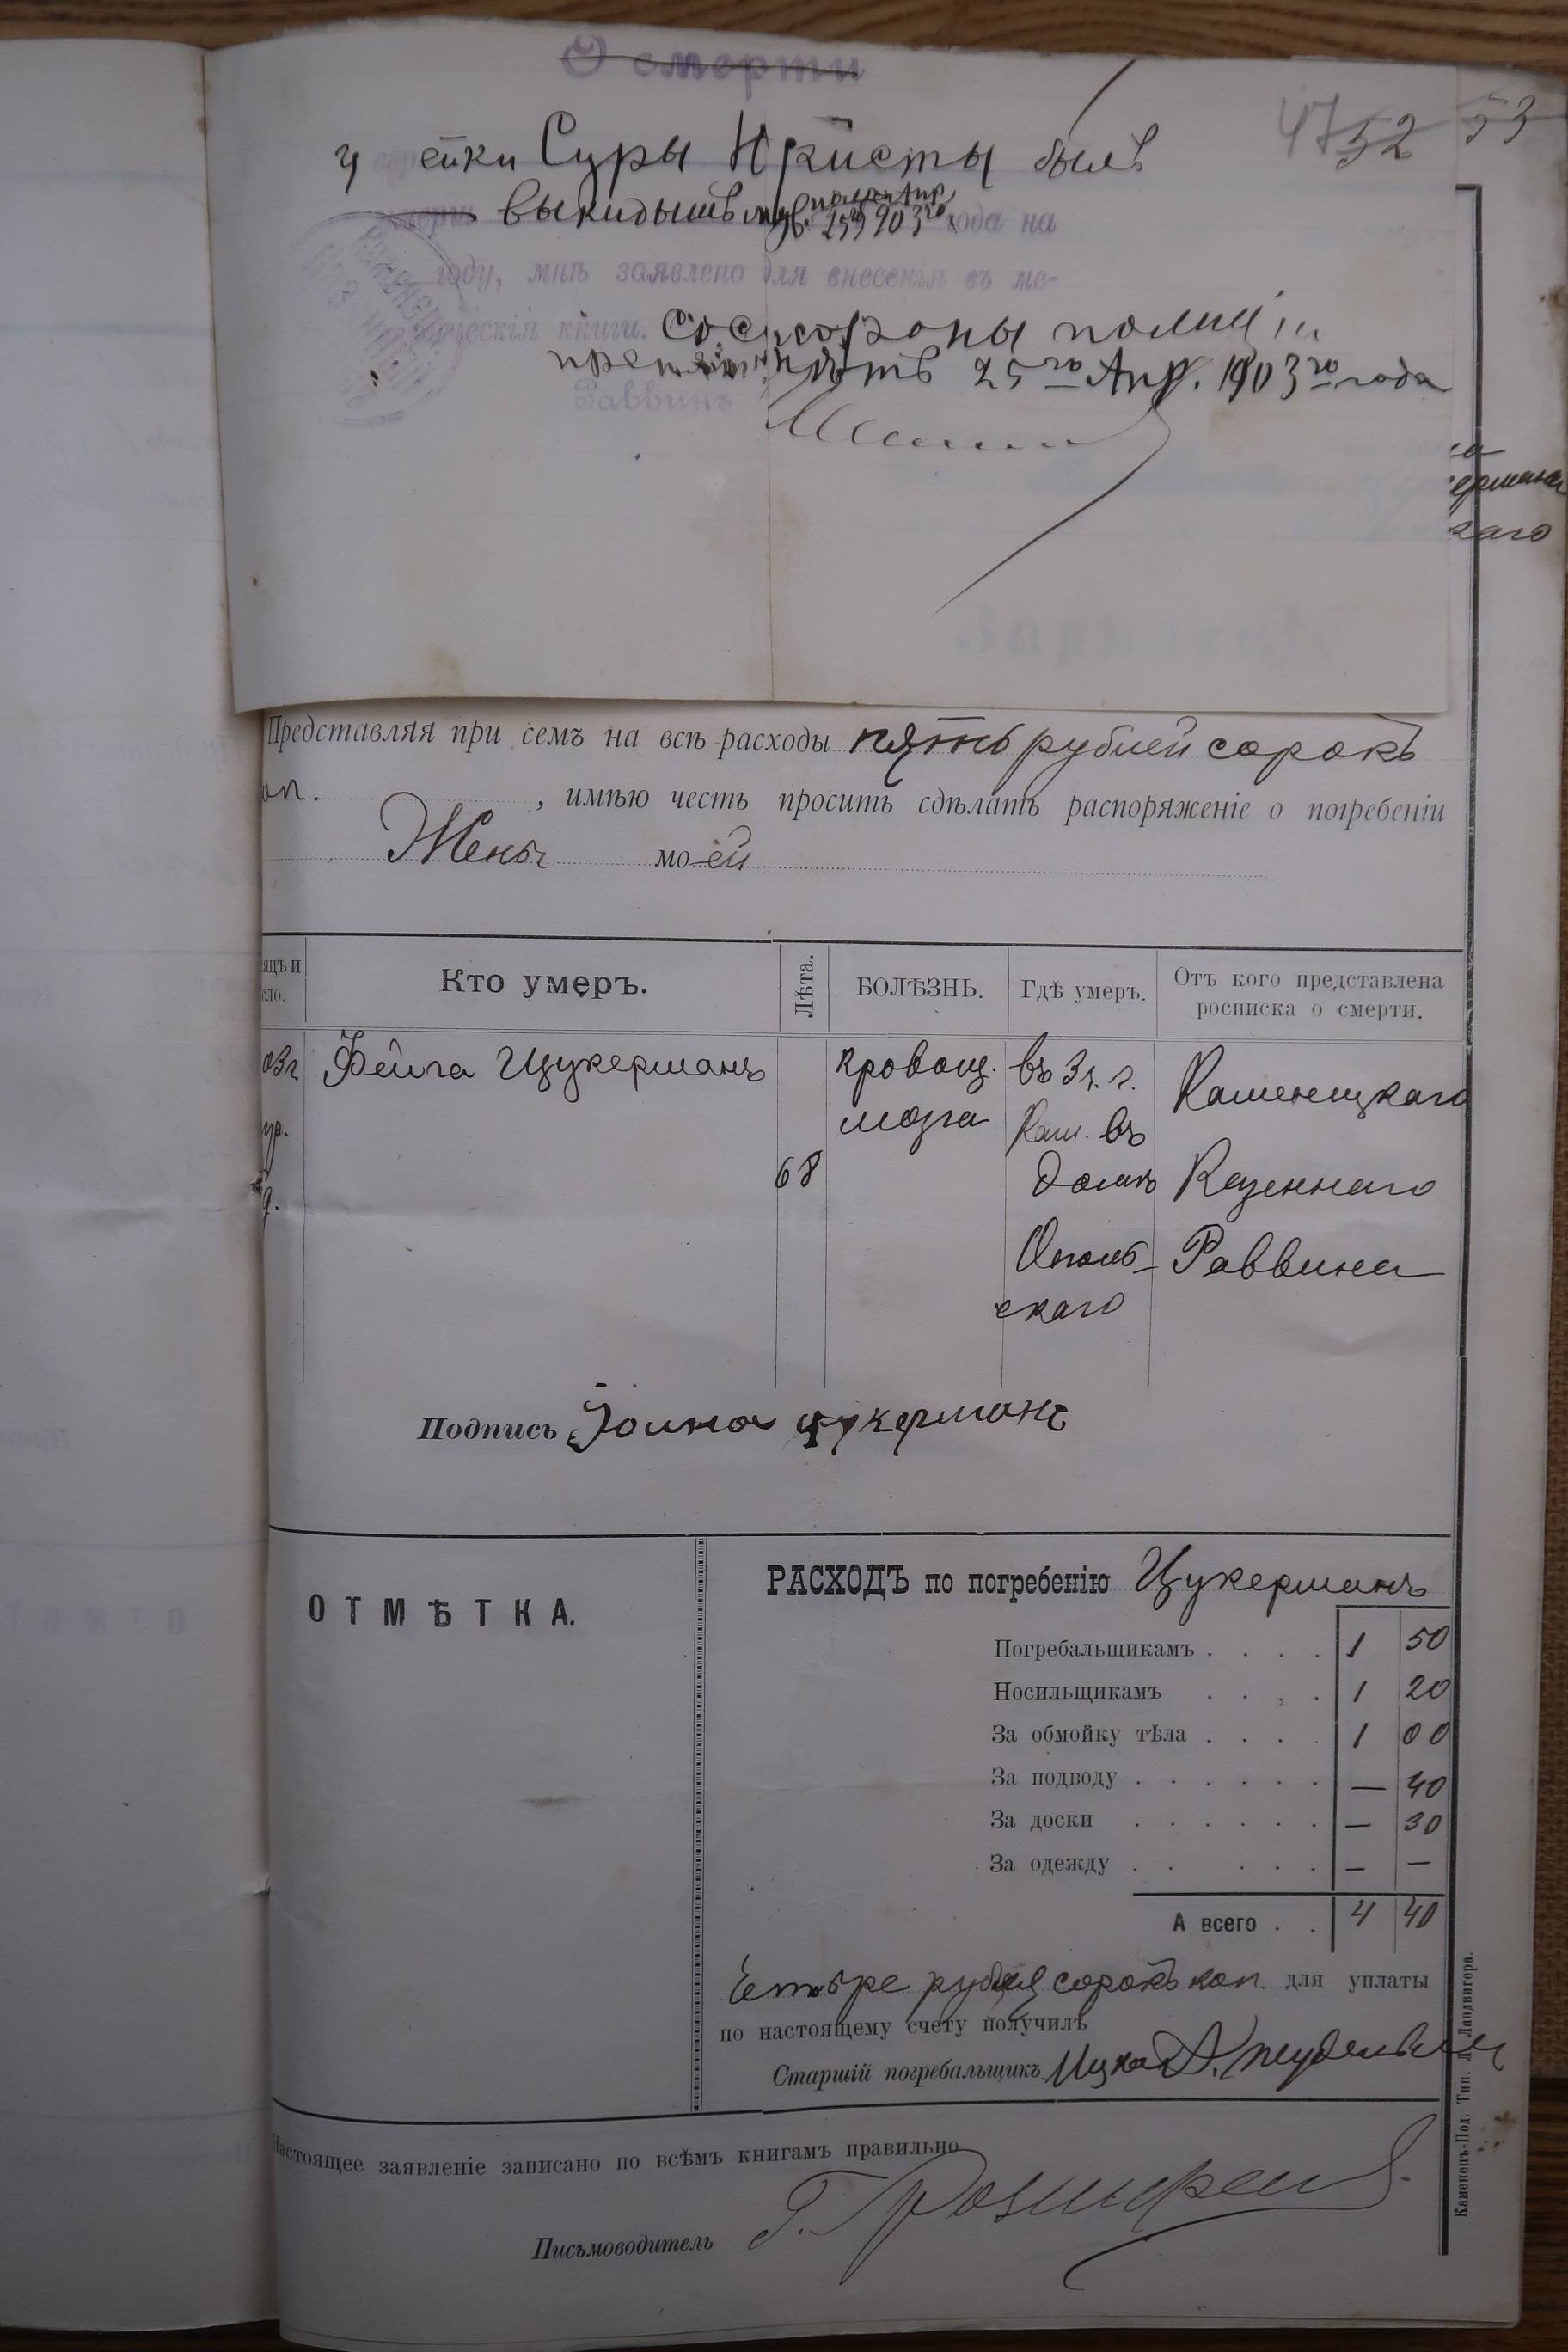 О смерти
47 52 53
у ейки Суры Нкисты былъ
выкидышъ 25го Апр 903го года на
году, мнѣ заявлено для внесенія въ ме-
рическія книги. Со стороны полиціи
препятств нѣтъ 25го Апр. 1903го года
Раввинъ
ермана
каго
Представляя при семъ на всѣ расходы пять рублей сорокъ
оп. , имѣю честь просить сдѣлать распоряженіе о погребеніи
Жены моей
яцъ и
сло.
Кто умеръ.
Лѣта.
БОЛѢЗНЬ.
Гдѣ умеръ.
Отъ кого представлена
росписка о смерти.
03г Фейга Цукерманъ
68
кровоиз.
мозга
въ 3 ч. г.
Кам. въ
домѣ
Ополь-
скаго
Каменецкаго
Казеннаго
Раввина
Подпись Іоина цукерманъ
ОТМѢТКА.
РАСХОДЪ по погребенію Цукерманъ
Погребальщикамъ . . . . 1 50
Носильщикамъ . . . . 1 20
За обмойку тѣла . . . . 1 00
За подводу . . . . . . — 40
За доски . . . . . . — 30
За одежду . . . . . — —
А всего . . 4 40
Четыре рубля сорокъ коп. для уплаты
по настоящему счету получилъ
Старшій погребальщикъ Ицко
Настоящее заявленіе записано по всѣмъ книгамъ правильно
Письмоводитель
Каменецъ-Под. Тип. Л. Ландвигера.